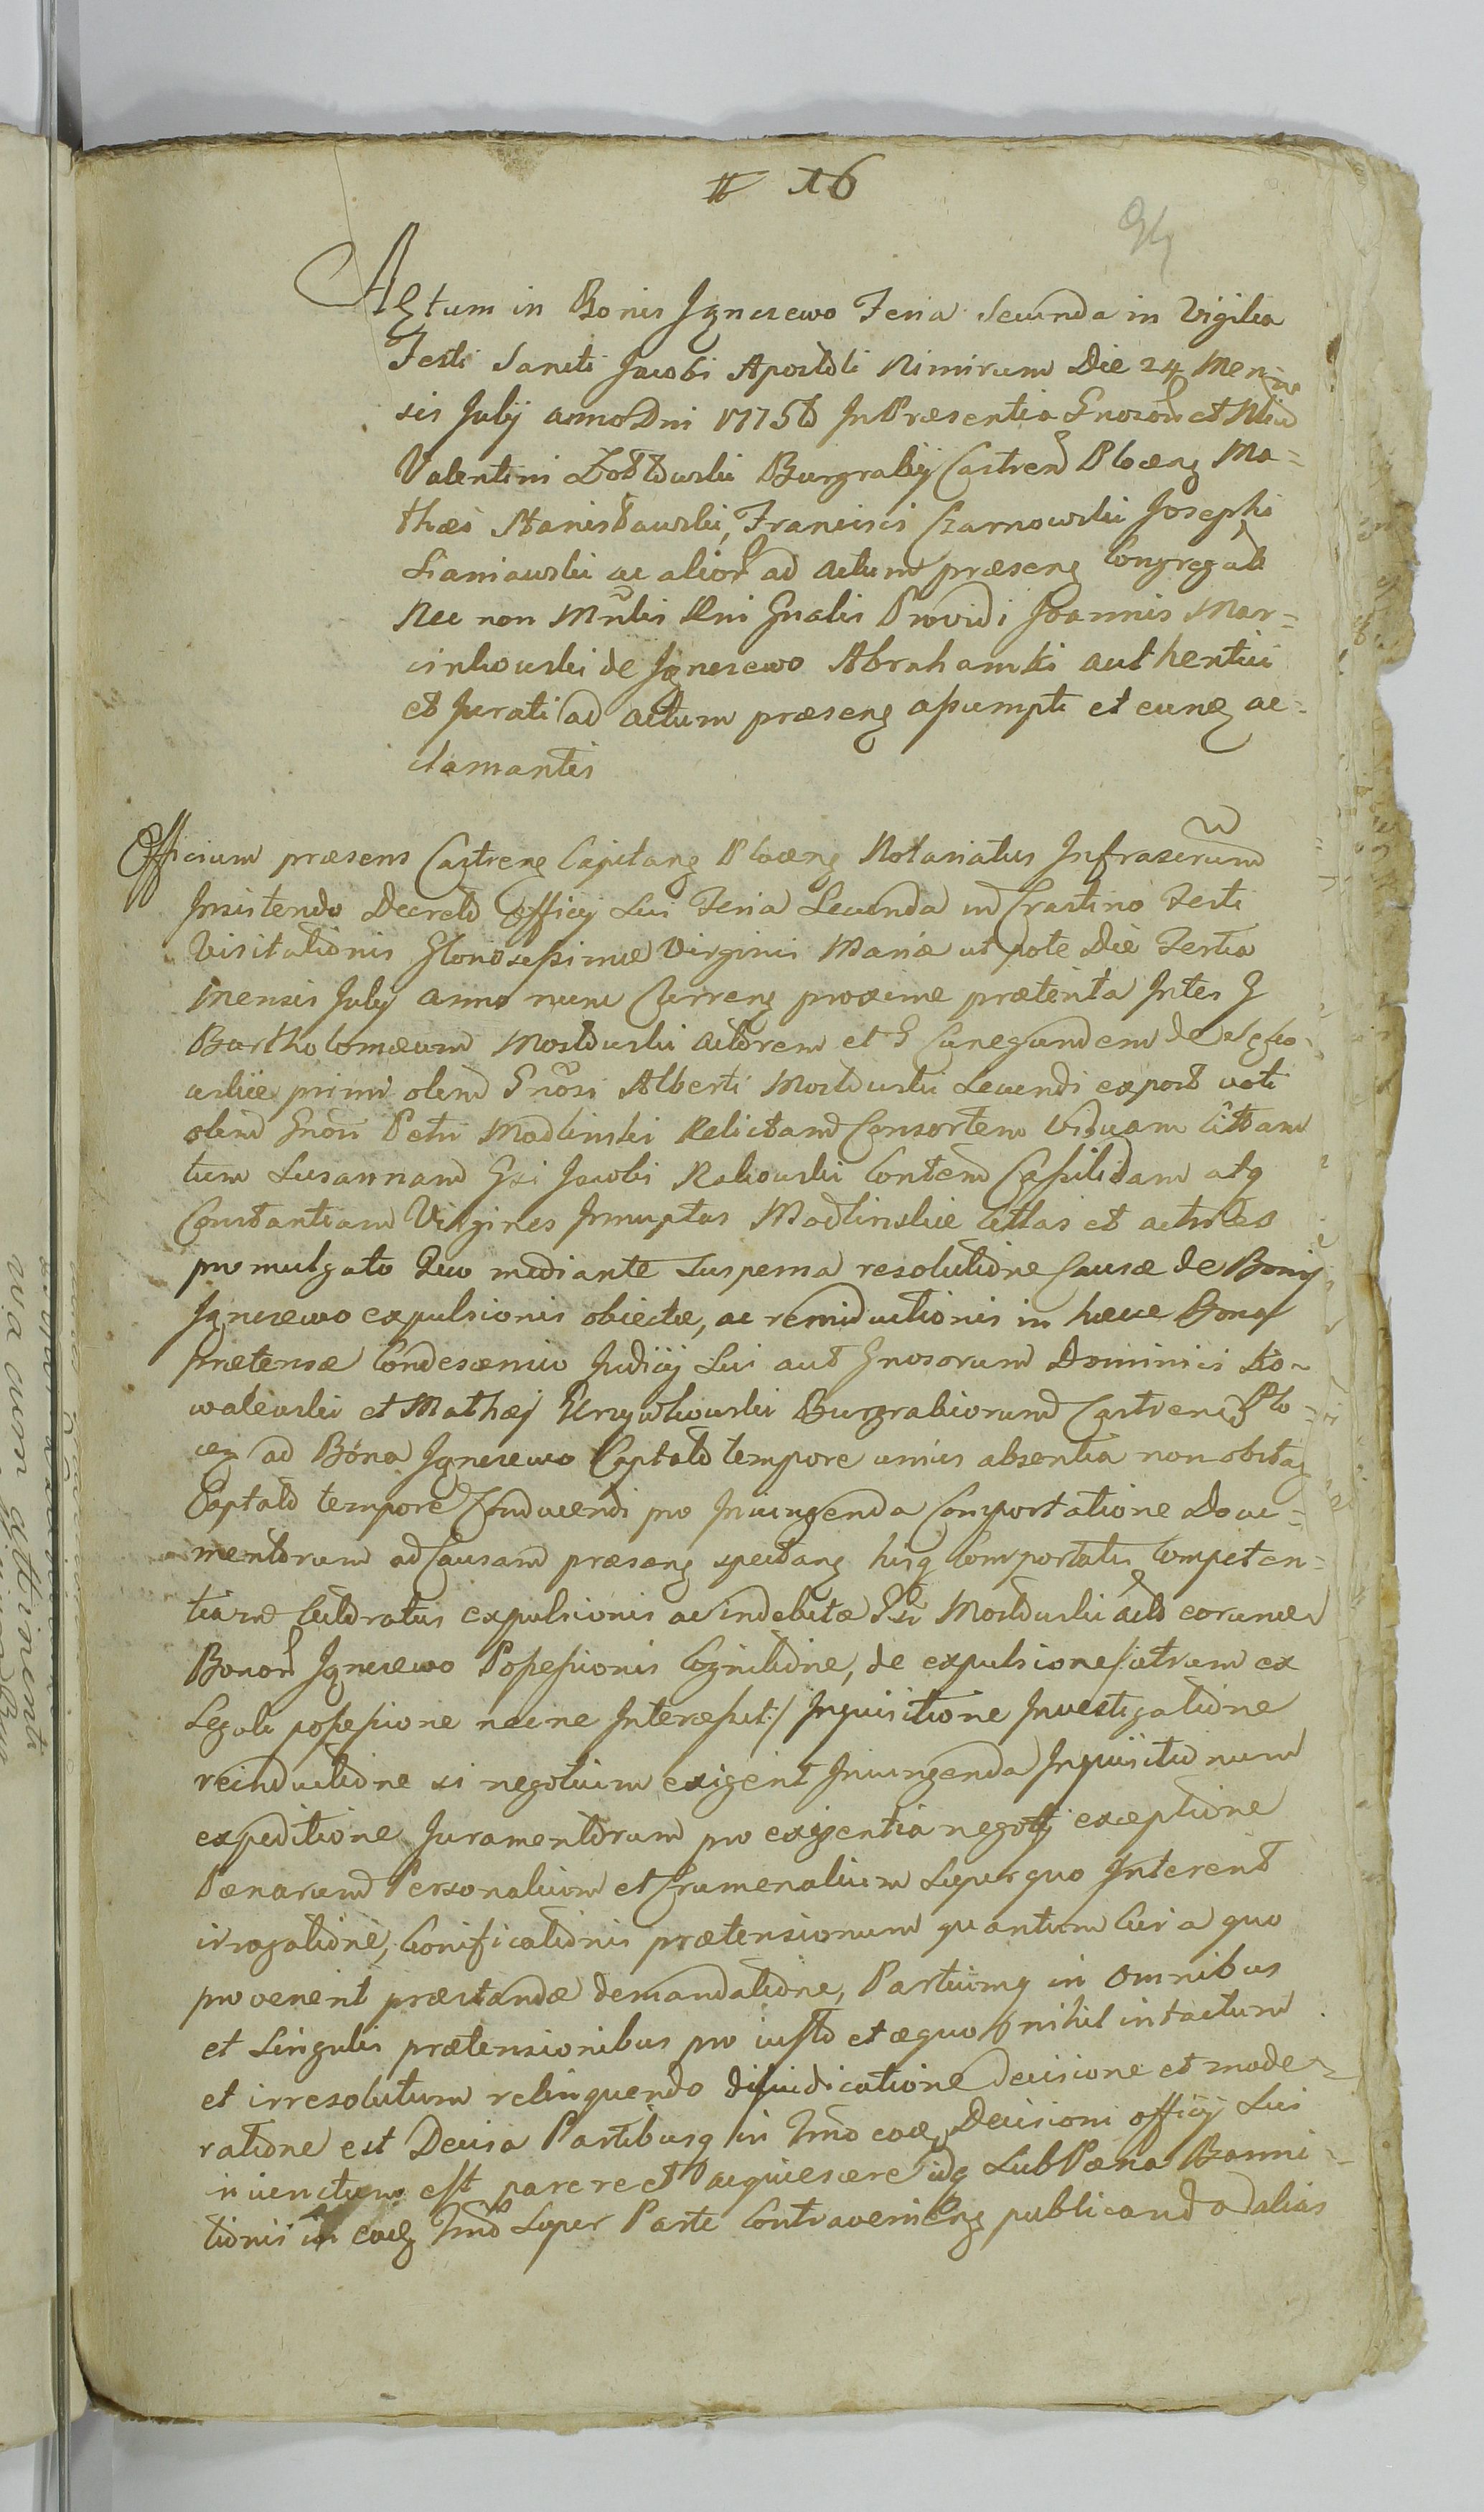 # 16
94
Actum in Bonis Jgnacewo Feria Secunda in Vigilia
Festi Sancti Jacobi Apostoli Nimirum Die 24 Men=
sis Julij anno Dni 1775to In Præsentia Gnosor et Nliu
Valentini Burgrabij Castren Plocen Ma=
thæi Stanisławski, Francisci Czarnowski Josephi
Laniawski ac alior ad actum præsens Congregat
Nec non Mnlis Rni Gnalis Providi Joannis Mar=
cinkowski de Jgnacewo Abrahamki authentici
et Jurati ad actum præsens assumpti et eunq ac=
clamantis
Officium præsens Castrens Capitane Plocens Notariatus Infrascrum
Insistendo Decreto officij Sui Feria Secunda in Crastino Festi
Visitationis Gloriosissimæ Virginis Mariæ utpote Die Tertia
mensis Julij anno nunc Curren proxime præterita Inter G
Bartholomæum Mostowski actorem et G Cunegundem de
primi olim Gnosi Alberti Mostowski Secundi expost voti
olim Gnosi Petri Modlinski Relictam Consortem Viduam Cittam
tum Susannam Gsi Jacobi Rakowski Contem Cassildam atq
Constantiam Virgines Innuptas Modlinskie Cittas et
promulgato Quo mediante Suspensa resolutione Causæ de Bonis
Jgnacewo expulsionis obiectæ, ac reinductionis in hæcce Bona
prætensæ Condescensio Judicij Sui aut Gnosorum Dominici Ko=
walewski et Mathæj Burgrabiorum Castrens Plo=
cen ad Bona Jgnacewo Captato tempore unius absentia non obstan
Captato tempore Conducendi pro Iniungenda Comportatione Docu=
mentorum ad Causam præsens spectans hisq Comportatis Competen=
tiarum Citoratus expulsionis ac indebitæ Gsi Mostowski acto eorumce
Bonor Jgnacewo Possessionis Cognitione, de expulsione /: utrum ex
Legali possessione necne Intercessit :/ Inquisitione Investigatione
reinductione si negotium exigent Iniungenda Inquisitionum
expeditione Juramentorum pro exigentia negotij exceptione
Pænarum Personalium et Frumenalium Super quo Interent
irrogatione, bonificationis prætensionum quantum Cui a quo
provenent præstandæ demandatione, Partiumq in omnibus
et Singulis prætensionibus pro iusto et æquo nihil intactum
et irresolutum relinquendo diiudicatione decisione et mode=
ratione est Decisa Partibusq in Tmo eoq Decisioni officij Sui
iniunctum est parere et acquiescere idq Sub Pæna Banni=
tionis in eoq Tmo Super Parte Contraveniens publicando alias